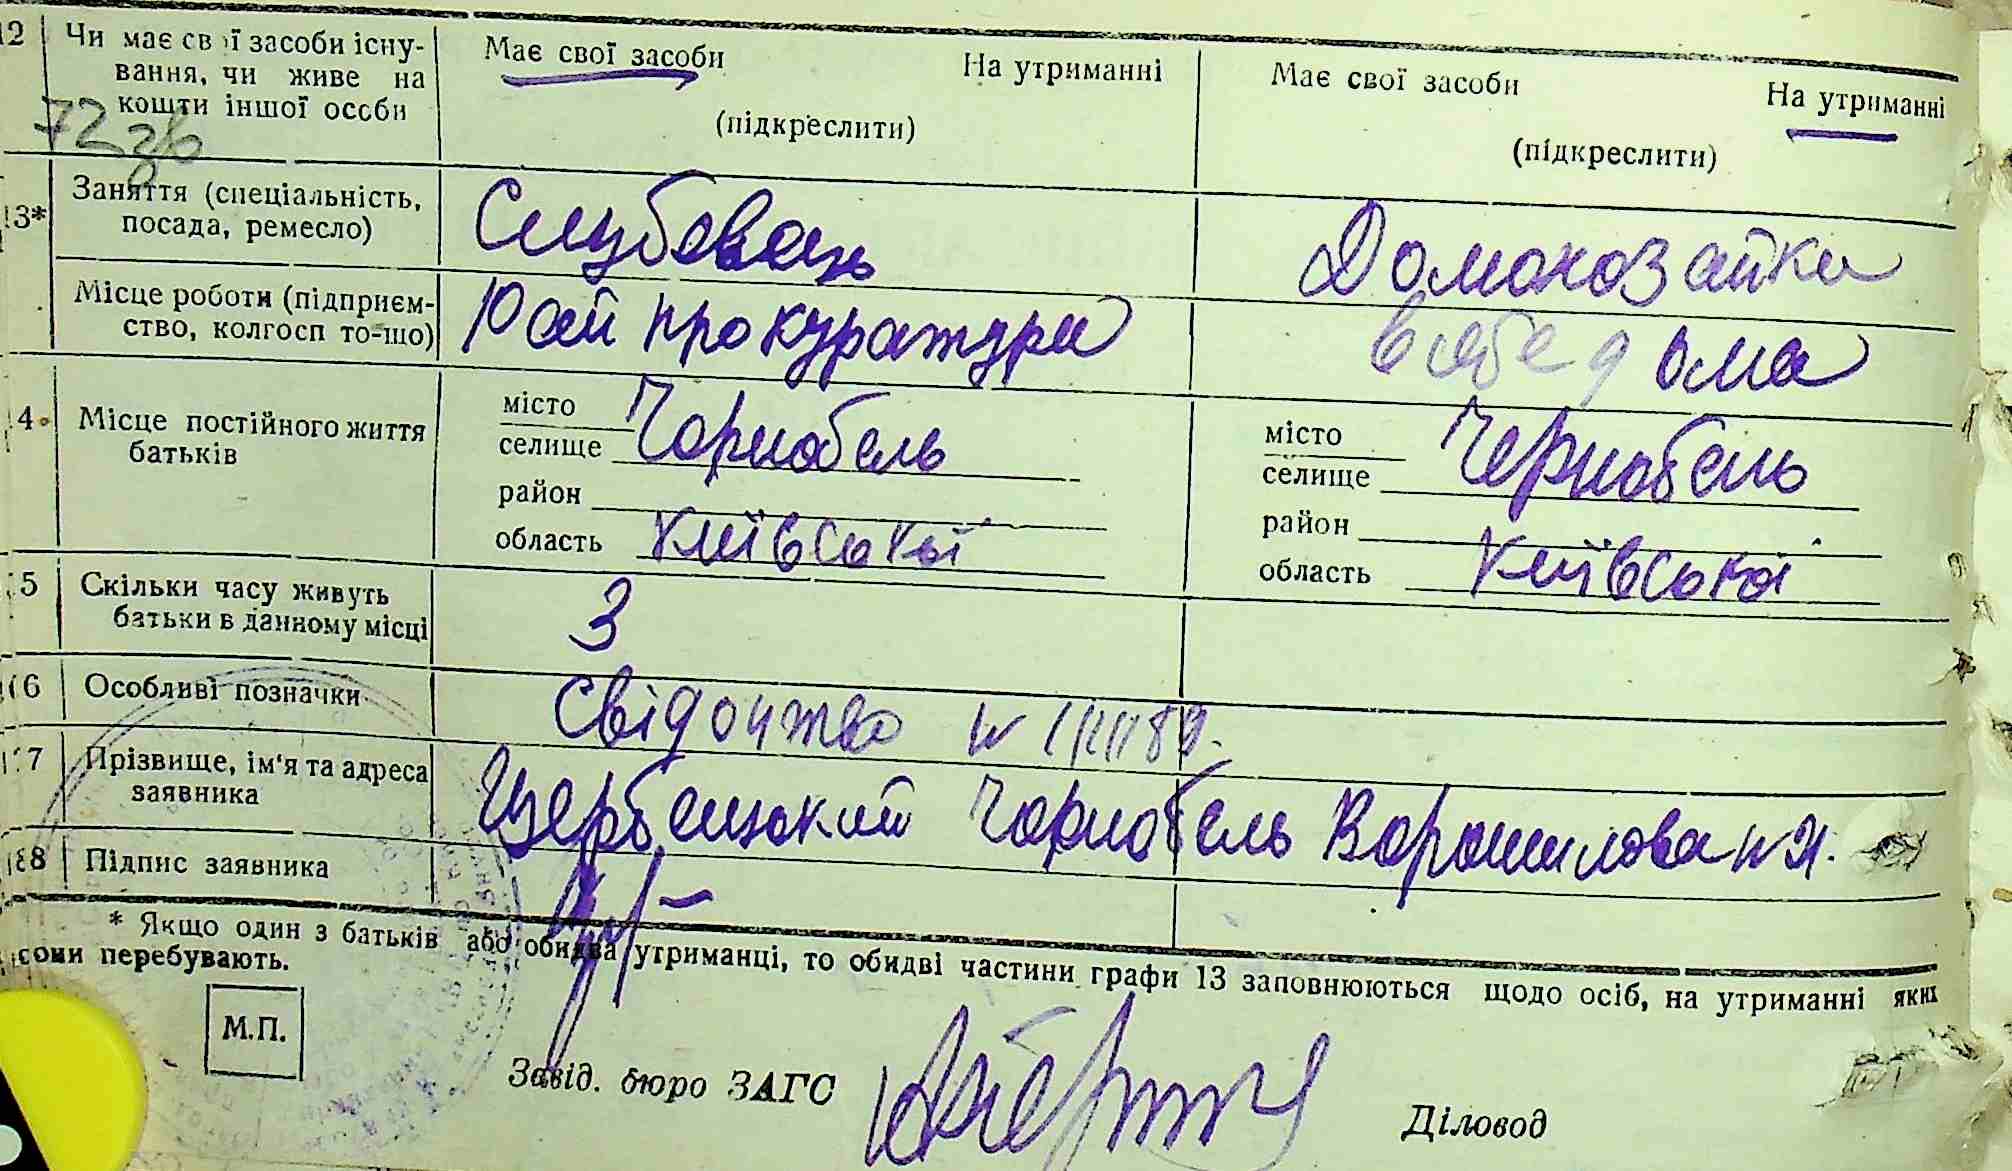 12 Чи має свої засоби існу- Має свої засоби На утриманні Має свої засоби На утриманні
вання, чи живе на
кошти іншої особи (підкреслити) (підкреслити)
72
13* Заняття (спеціальність, Службовець Домохозайка
посада, ремесло)
Місце роботи (підприєм- Рай прокуратури в себе дома
ство, колгосп то-що)
14 Місце постійного життя місто Чорнобель місто Чернобель
батьків селище селище
район район
область Київської область Київської
15 Скільки часу живуть 3
батьки в данному місці
16 Особливі позначки Свідоцтво N
17 Прізвище, ім'я та адреса Щербецький Чорнобель Ворошилова N
заявника
18 Підпис заявника
* Якщо один з батьків або обидва утриманці, то обидві частини графи 13 заповнюються щодо осіб, на утриманні яких
сони перебувають.
М.П.
Завід. бюро ЗАГС
Діловод